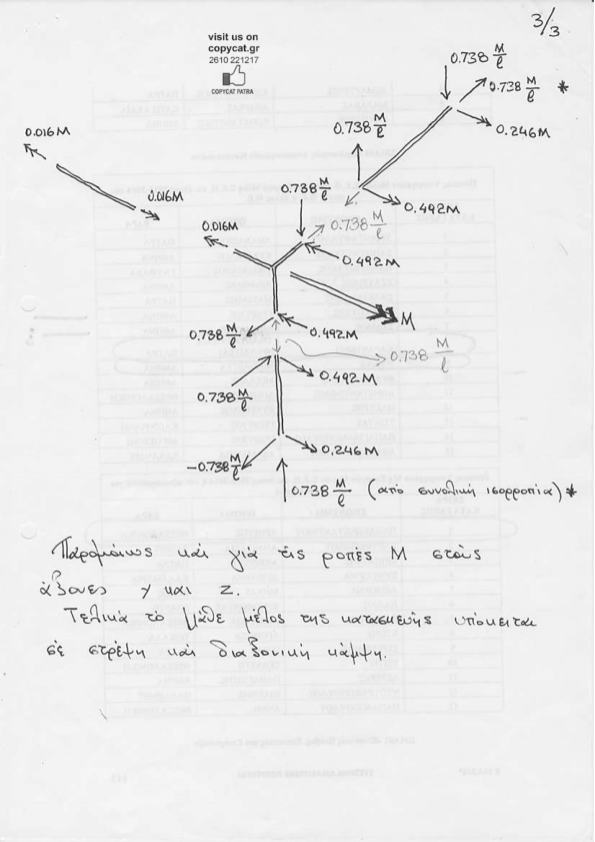 3/3
visit us on
copycat.gr
2610 221217
COPYCAT PATRA
0.738 M/ℓ
0.738 M/ℓ *
0.246M
0.738 M/ℓ
0.016M
0.016M
0.738 M/ℓ
0.492M
0.738 M/ℓ
0.016M
0.492M
M
0.738 M/ℓ
0.492M
0.738 M/ℓ
0.492M
0.738 M/ℓ
0.246M
-0.738 M/ℓ
0.738 M/ℓ (από συνολική ισορροπία) *
Παρομοίως και για τις ροπές Μ στους
άξονες y και z.
Τελικά το κάθε μέλος της κατασκευής υπόκειται
σε στρέψη και διαξονική κάμψη.